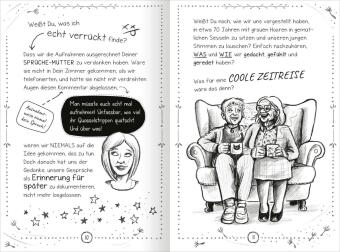 Weißt Du, was ich
echt verrückt finde?
Dass wir die Aufnahmen ausgerechnet Deiner
SPRÜCHE-MUTTER zu verdanken haben. Wäre
sie nicht in Dein Zimmer gekommen, als wir
telefonierten, und hätte sie nicht mit verdrehten
Augen diesen Kommentar abgelassen:
Man müsste euch echt mal
aufnehmen! Unfassbar, wie viel
ihr Quasselstrippen quatscht!
Und über was!
wären wir NIEMALS auf die
Idee gekommen, das zu tun.
Doch danach hat uns der
Gedanke, unsere Gespräche
als Erinnerung für
später zu dokumentieren,
nicht mehr losgelassen.
10
Weißt Du noch, wie wir uns vorgestellt haben,
in etwa 70 Jahren mit grauen Haaren in gemüt-
lichen Sesseln zu sitzen und unseren jungen
Stimmen zu lauschen? Einfach nachzuhören,
WAS und WIE wir gedacht, gefühlt und
geredet haben?
Was für eine COOLE ZEITREISE
wäre das denn?
11